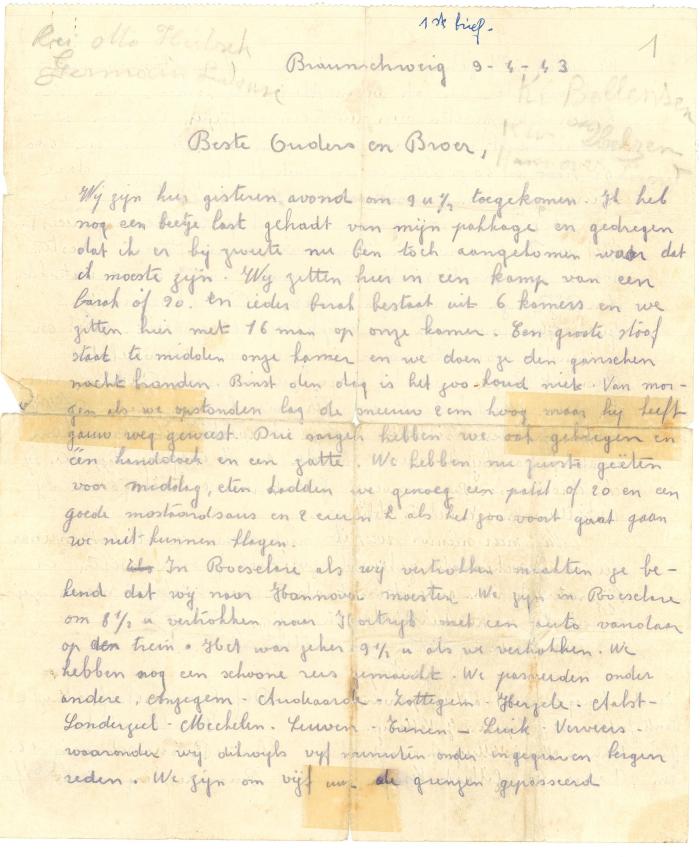 1ste brief.
1
bei Otto
Germain
Braunschweig 9-4-43
Beste Ouders en Broer,
Wij zijn hier gisteren avond om 9 u ½ toegekomen. Ik heb
nog een beetje last gehadt van mijn pakkage en gedregen
dat ik er bij zweete nu ben toch aangekomen waar dat
ik moeste zijn. Wij zitten hier in een kamp van een
barak of 20. En ieder barak bestaat uit 6 kamers en we
zitten hier met 16 man op onze kamer. Een groote stoof
staat te midden onze kamer en we doen ze den ganschen
nacht branden. Binst den dag is het zoo koud niet. Van mor-
gen als we opstonden lag de sneeuw 2 cm hoog maar hij heeft
gauw weg geweest. Drie sargen hebben we ook gekregen en
één handdoek en een zatte. We hebben nu juiste geëten
voor middag, eten hadden we genoeg een patat of 20 en een
goede mostaardsaus en 2 eieren als het zoo voort gaat gaan
we niet kunnen klagen.
In Roeselare als wij vertrokken maakten ze be-
kend dat wij naar Hannover moesten. We zijn in Roeselare
om 8 ½ u vertrokken naar Kortrijk met een auto vandaar
op den trein. Het was zeker 9 ½ u als we vertrokken. We
hebben nog een schoone reis gemaakt. We passeerden onder
andere, Anzegem - Audenaarde - Zottegem - Herzele - Aalst -
Londerzeel - Mechelen - Leuven - Tienen - Luik - Verviers -
waaronder wij dikwijls vijf minuten onder ingegraven bergen
reden. We zijn om vijf uur de grenzen gepasseerd